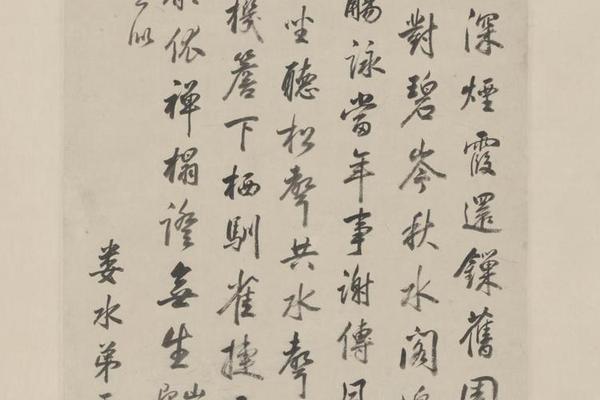 深煙霞還鏁舊周
對碧岑秋水閣
觴詠當年事謝傅同
坐聽松聲共水聲
機簷下栖馴雀捷
依禪榻證無生
以
婁水弟